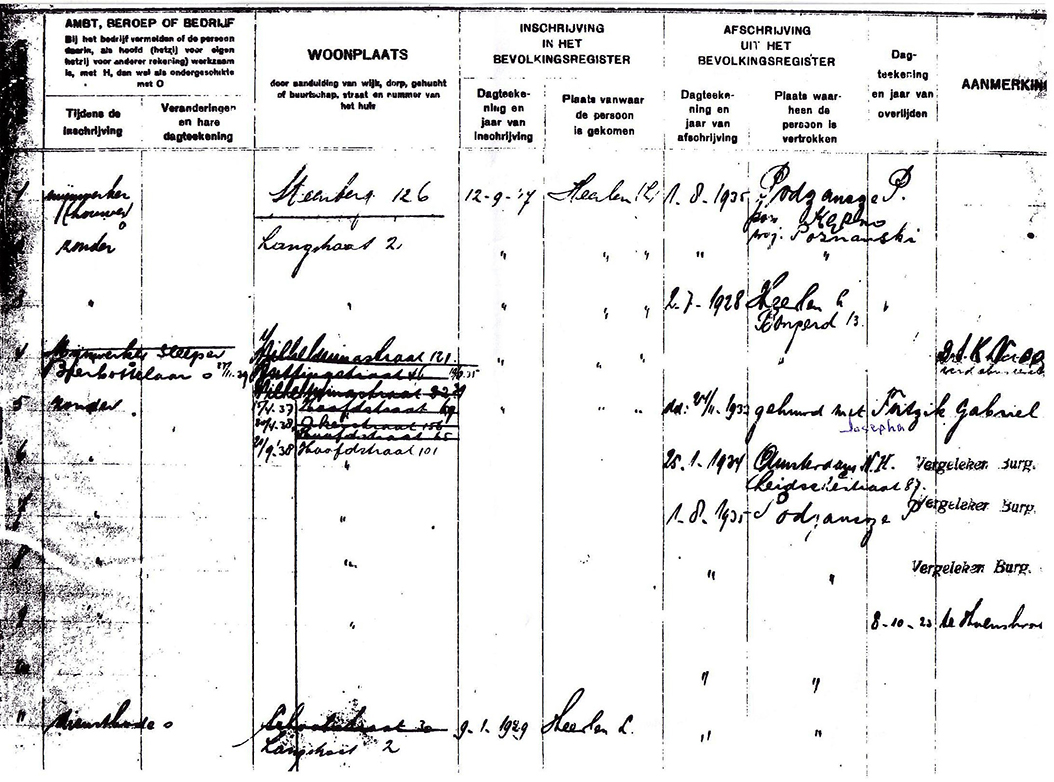 AMBT, BEROEP OF BEDRIJF
Bij het bedrijf vermelden of de persoon
daarin, als hoofd (hetzij voor eigen
hetzij voor anderer rekening) werkzaam
is, met H, dan wel als ondergeschikte
met O
Tijdens de
inschrijving
Veranderingen
en hare
dagteekening
WOONPLAATS
door aanduiding van wijk, dorp, gehucht
of buurtschap, straat en nummer van
het huis
INSCHRIJVING
IN HET
BEVOLKINGSREGISTER
Dagteeke-
ning en
jaar van
inschrijving
Plaats vanwaar
de persoon
is gekomen
AFSCHRIJVING
UIT HET
BEVOLKINGSREGISTER
Dagteeke-
ning en
jaar van
afschrijving
Plaats waar-
heen de
persoon is
vertrokken
Dag-
teekening
en jaar van
overlijden
AANMERKIN
1 mijnwerker Steenberg 126 12-9-'17 Heerlen (L) 1-8-1935 Podzamcze P.
(houwer) pow. Kępno
o woj. Poznanski
zonder Langstraat 2 " " " " "
3 " " " " " 2-7-1928 Heerlen L "
13
4 Mijnwerker Sleeper Wilhelminastraat 121 " " " "
Bierbottelaar o
Wilhelminastraat
5 zonder 17/4.37 Hoofdstraat " " " 24/11-1932 gehuwd met Fritzik Gabriel
20/4.38 Akerstraat
Josepha
Hoofdstraat
6 " 20/9.38 Hoofdstraat 101 25-1-1934 Amsterdam N.H. Vergeleken Burg.
" Leidschestraat 87
7 " " 1-8-1935 Podzamcze P Vergeleken Burg.
8 " " " " Vergeleken Burg.
9 " " 8-10-23 te Hoensbroe
10 " "
11 dienstbode o Schoolstraat 30 9-1-1929 Heerlen L. " "
Langstraat 2